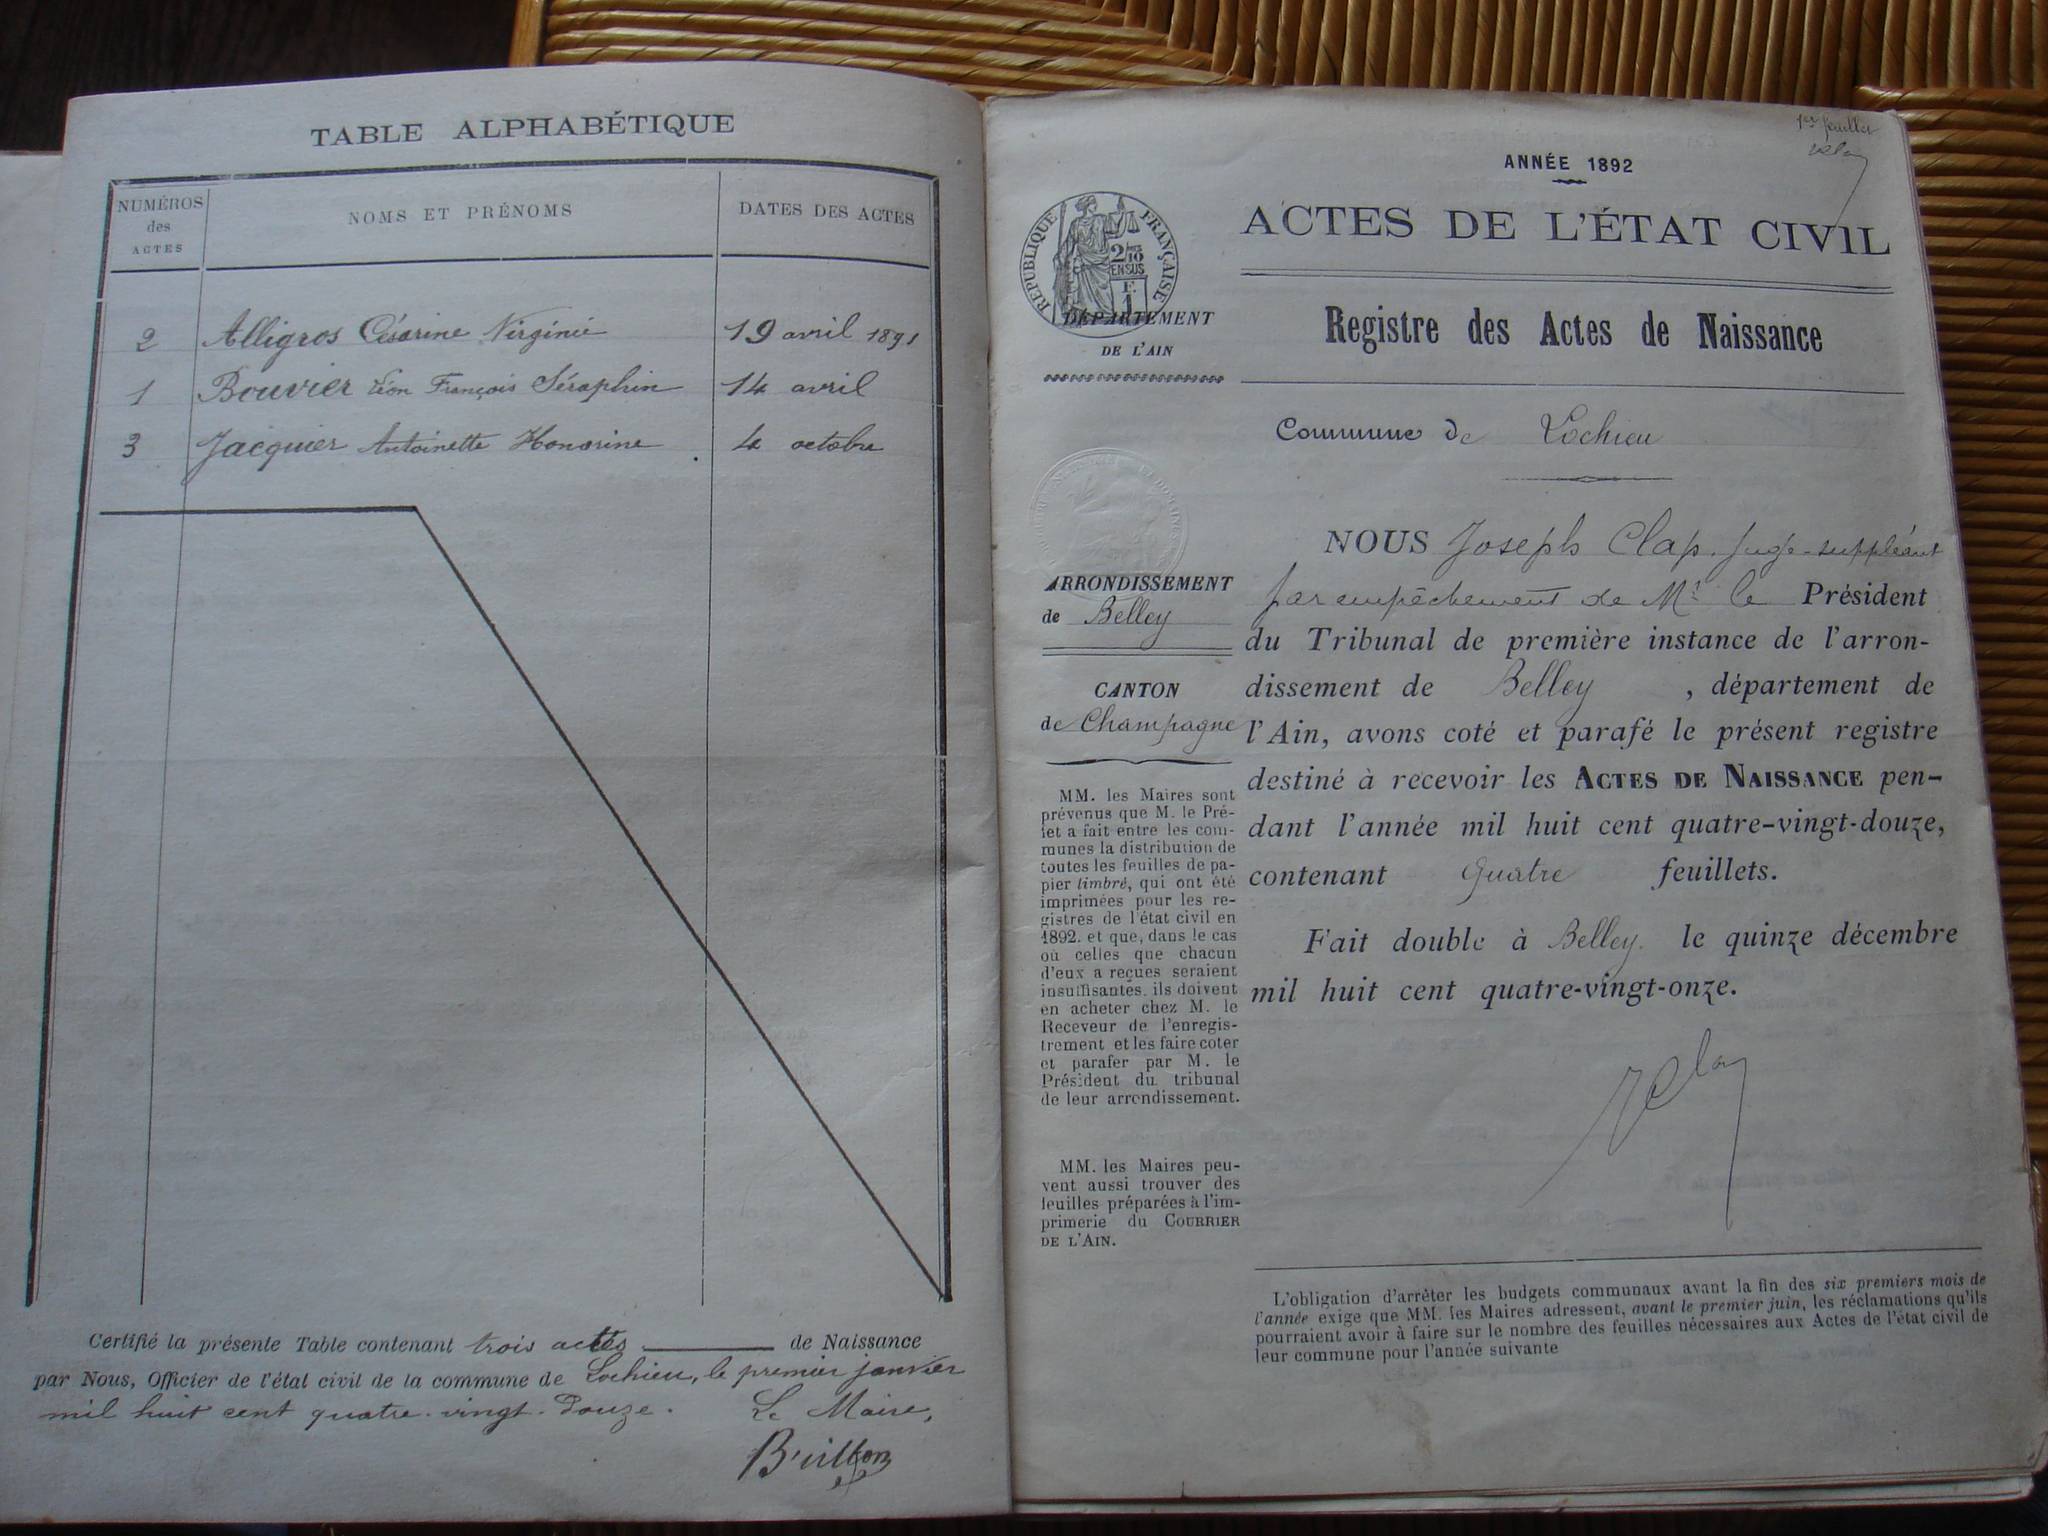 TABLE ALPHABÉTIQUE
NUMÉROS des ACTES
NOMS ET PRÉNOMS
DATES DES ACTES
2 Alligros Césarine Virginie 19 avril 1891
1 Bouvier Léon François Séraphin 14 avril
3 Jacquier Antoinette Honorine 4 octobre
Certifié la présente Table contenant trois actes de Naissance
par Nous, Officier de l'état civil de la commune de Lochieu, le premier janvier
mil huit cent quatre-vingt-douze.
Le Maire,
1er feuillet
ANNÉE 1892
ACTES DE L'ÉTAT CIVIL
RÉPUBLIQUE FRANÇAISE
2/10
EN SUS
F.
1
DÉPARTEMENT
DE L'AIN
Registre des Actes de Naissance
Commune de Lochieu
ARRONDISSEMENT
de Belley
CANTON
de Champagne
MM. les Maires sont
prévenus que M. le Pré-
fet a fait entre les com-
munes la distribution de
toutes les feuilles de pa-
pier timbré, qui ont été
imprimées pour les re-
gistres de l'état civil en
1892. et que, dans le cas
où celles que chacun
d'eux a reçues seraient
insuffisantes, ils doivent
en acheter chez M. le
Receveur de l'enregis-
trement et les faire coter
et parafer par M. le
Président du tribunal
de leur arrondissement.
MM. les Maires peu-
vent aussi trouver des
feuilles préparées à l'im-
primerie du COURRIER
DE L'AIN.
NOUS Joseph Clap, Juge-suppléant
par empêchement de Mr le Président
du Tribunal de première instance de l'arron-
dissement de Belley, département de
l'Ain, avons coté et parafé le présent registre
destiné à recevoir les ACTES DE NAISSANCE pen-
dant l'année mil huit cent quatre-vingt-douze,
contenant quatre feuillets.
Fait double à Belley. le quinze décembre
mil huit cent quatre-vingt-onze.
L'obligation d'arrêter les budgets communaux avant la fin des six premiers mois de
l'année exige que MM. les Maires adressent, avant le premier juin, les réclamations qu'ils
pourraient avoir à faire sur le nombre des feuilles nécessaires aux Actes de l'état civil de
leur commune pour l'année suivante